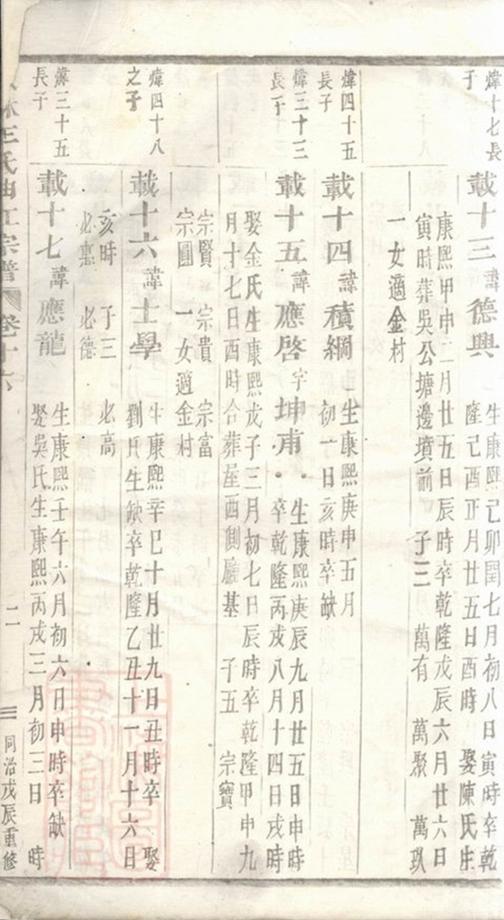 煒十七長
子
載十三諱德興
生康熙己卯閏七月初八日寅時卒乾
隆己酉正月廿五日酉時 娶陳氏生
康熙甲申二月廿五日辰時卒乾隆戊辰六月廿六日
寅時葬吳公塘邊墳前 子三 萬有 萬聚 萬玖
一女適金村
煒四十五
長子
載十四諱積綱
生康熙庚申五月
初一日亥時卒缺
煒三十三
長子
載十五諱應啓字坤甫
生康熙庚辰九月廿五日申時
卒乾隆丙戌八月十四日戌時
娶金氏生康熙戊子三月初七日辰時卒乾隆甲申九
月十七日酉時合葬屋西側廳基 子五 宗寶
宗賢 宗貴 宗富
宗圓 一女適金村
煒四十八
之子
載十六諱士學
生康熙辛巳十月廿九日丑時卒 娶
劉氏生缺卒乾隆乙丑十一月十六日
亥時 子三 必高
必惠 必德
煒三十五
長子
載十七諱應龍
生康熙壬午六月初六日申時卒缺
娶吳氏生康熙丙戌三月初三日 時
林王氏中江宗譜 卷十六
二一
同治戊辰重修